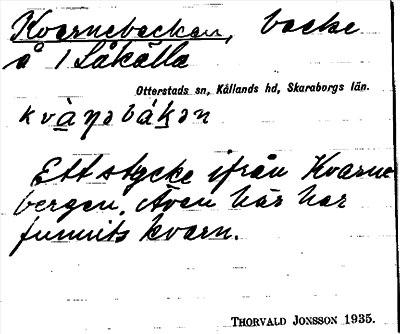 Kvarnebackan, backe
å 1 Såkälla
Otterstads sn, Kållands hd, Skaraborgs län.
kvàṇəbákən
Ett stycke ifrån Kvarne
bergen. Även här har
funnits kvarn.
THORVALD JONSSON 1935.